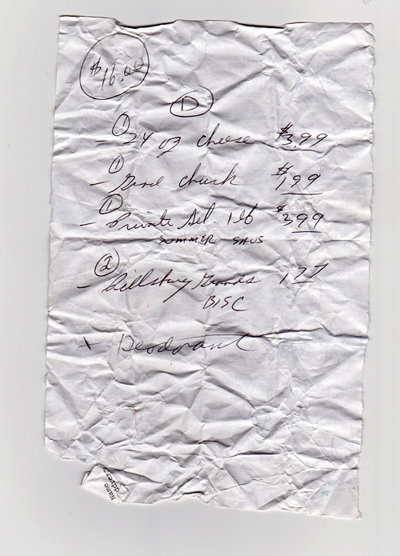 $16.00
1
1 24 oz cheese $3.99
- 1 Grnd chuck $1.99
- 1 Private Sel 1 lb $3.99
SUMMER SAUS
- 2 Pillsbury Grands 1.27
BISC
x Deodorant
Name